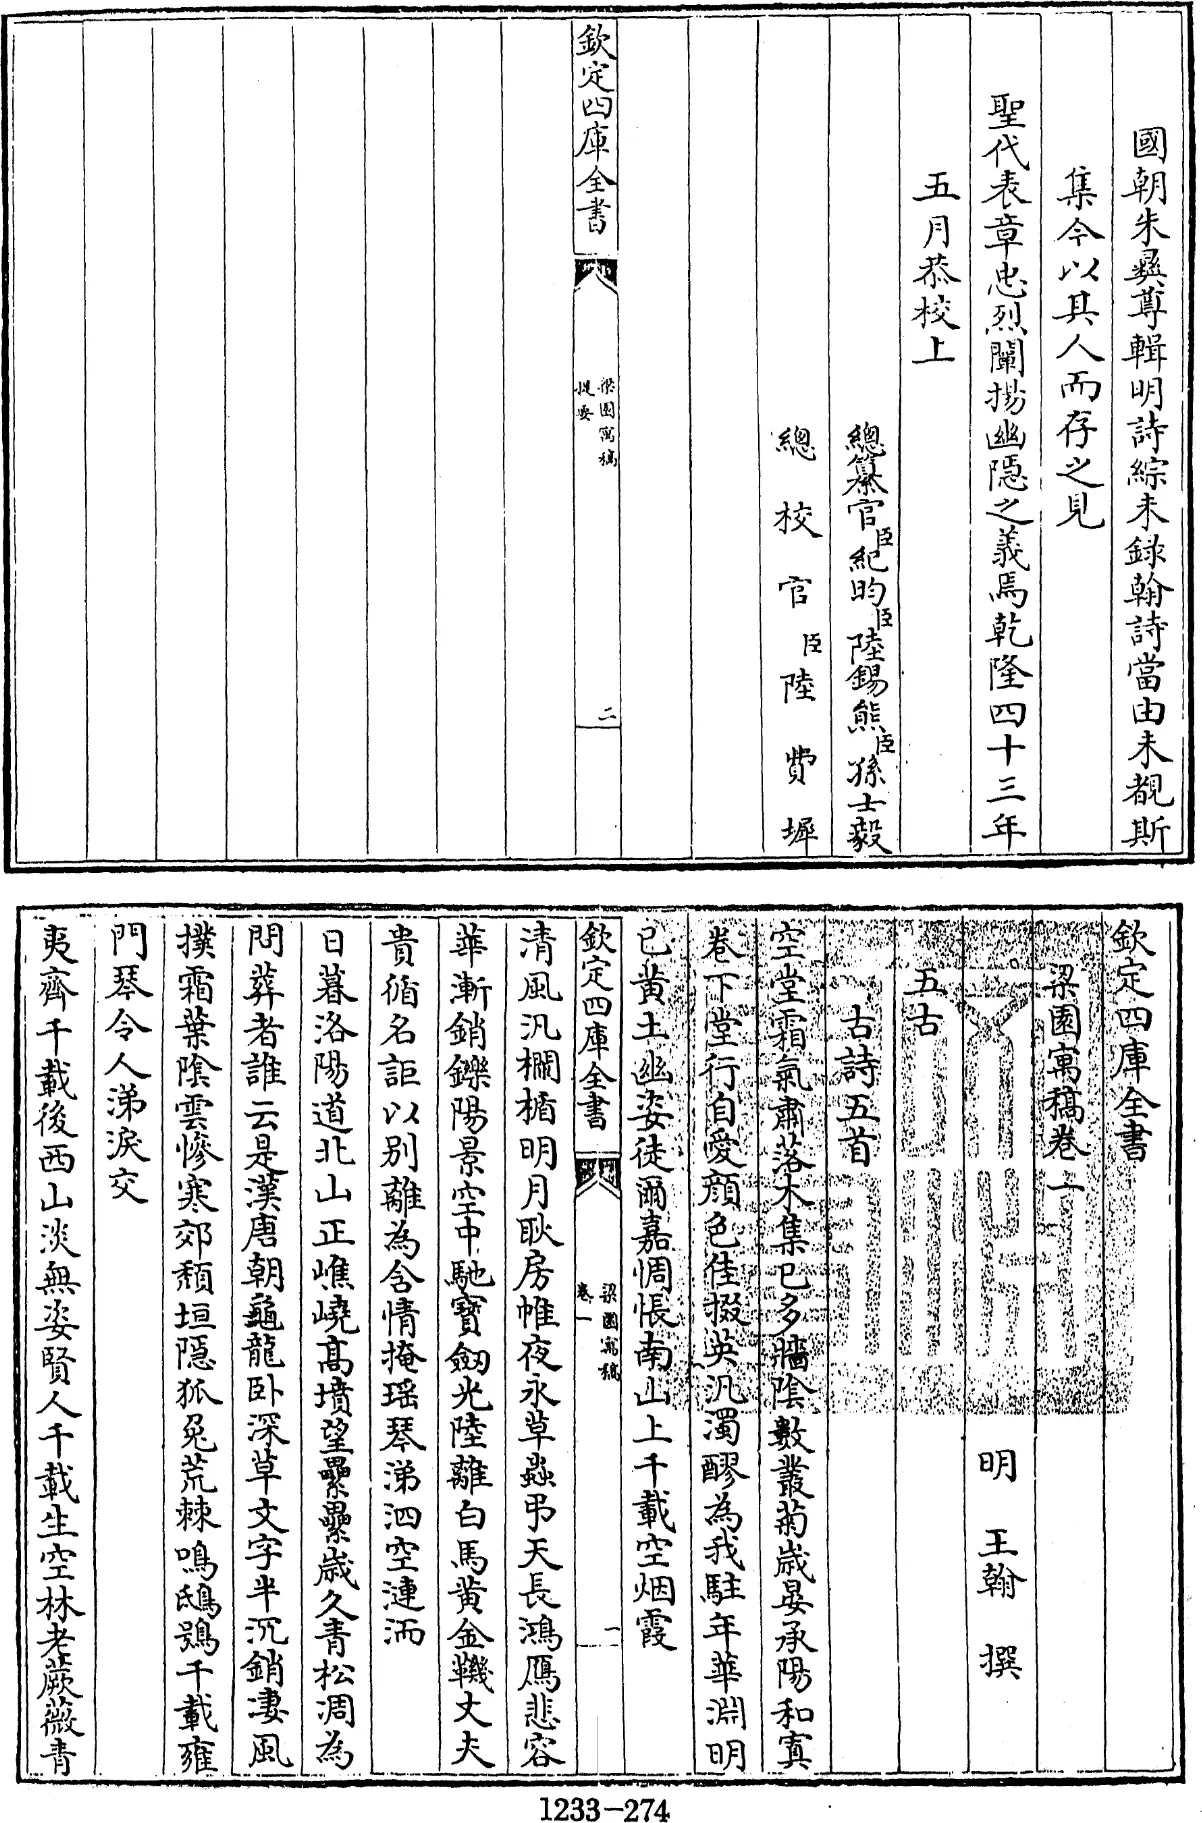 國朝朱彝尊輯明詩綜未錄翰詩當由未覩斯
集今以其人而存之見
聖代表章忠烈闡揚幽隠之義焉乾隆四十三年
五月恭校上
總纂官臣紀昀臣陸錫熊臣孫士毅
總校官臣陸費墀
欽定四庫全書
梁園寓稿
提要
二
欽定四庫全書
梁園寓稿卷一
明 王翰 撰
五古
古詩五首
空堂霜氣肅落木集已多牆陰數叢菊歳晏承陽和寘
卷下堂行自愛顔色佳掇英汎濁醪為我駐年華淵明
已黄土幽姿徒爾嘉惆悵南山上千載空烟霞
欽定四庫全書
梁園寓稿
卷一
一
清風汎櫚楯明月耿房帷夜永草蟲弔天長鴻鴈悲容
華漸銷鑠陽景空中馳寶劔光陸離白馬黄金鞿丈夫
貴循名詎以别離為含情掩瑶琴涕泗空連洏
日暮洛陽道北山正嶕嶢髙墳望纍纍歳久青松凋為
問葬者誰云是漢唐朝龜龍卧深草文字半沉銷凄風
撲霜葉陰雲慘寒郊頽垣隠狐兔荒棘鳴鴟鴞千載雍
門琴令人涕淚交
夷齊千載後西山淡無姿賢人千載生空林老蕨薇青
1233-274